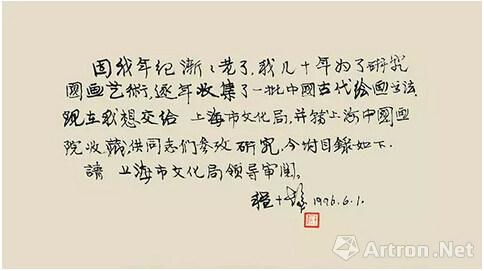 因我年纪渐渐老了，我几十年为了研究
国画艺術，逐年收集了一批中國古代绘画書法
现在我想交给 上海市文化局，并转上海中國画
院收藏供同志们参攷研究，今附目録如下．
請 上海市文化局领导审阅。
程十髮 1996.6.1.
Artron.Net